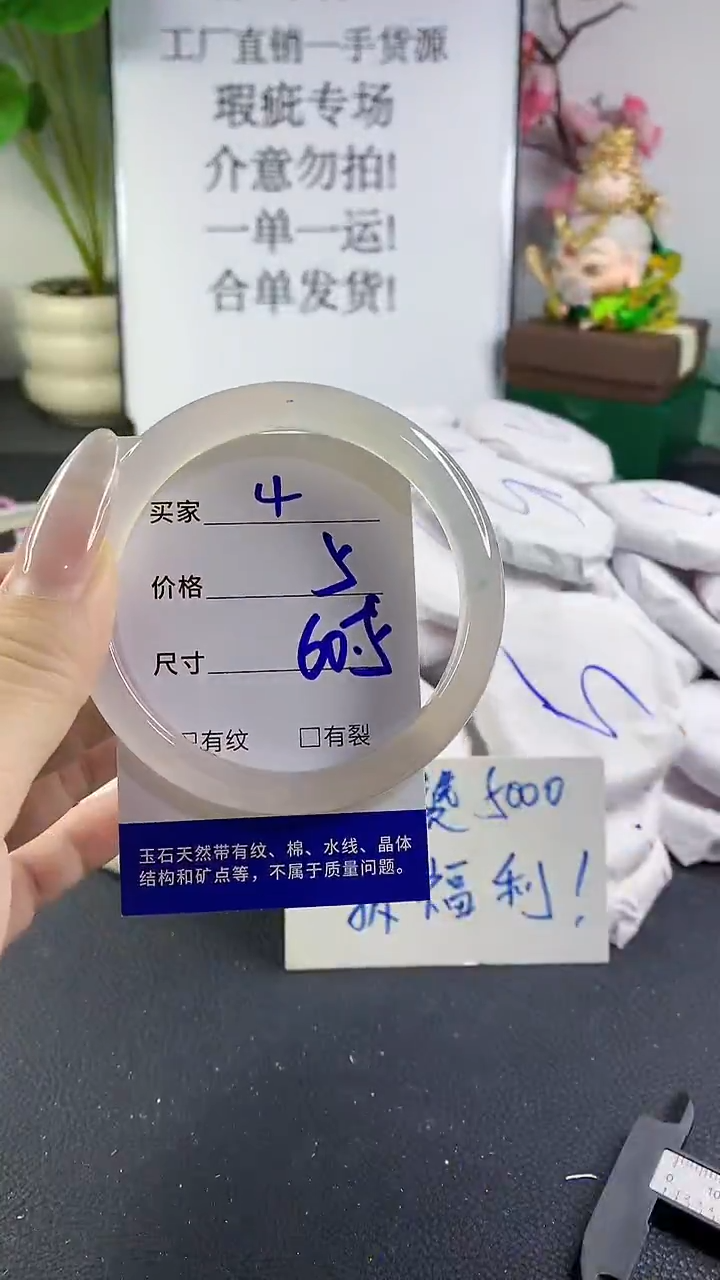 工厂直销一手货源
瑕疵专场
介意勿拍!
一单一运!
合单发货!
买家 4
价格 5
尺寸 60
口有纹 口有裂
玉石天然带有纹、棉、水线、晶体
结构和矿点等，不属于质量问题。
5000
福利！
0 10